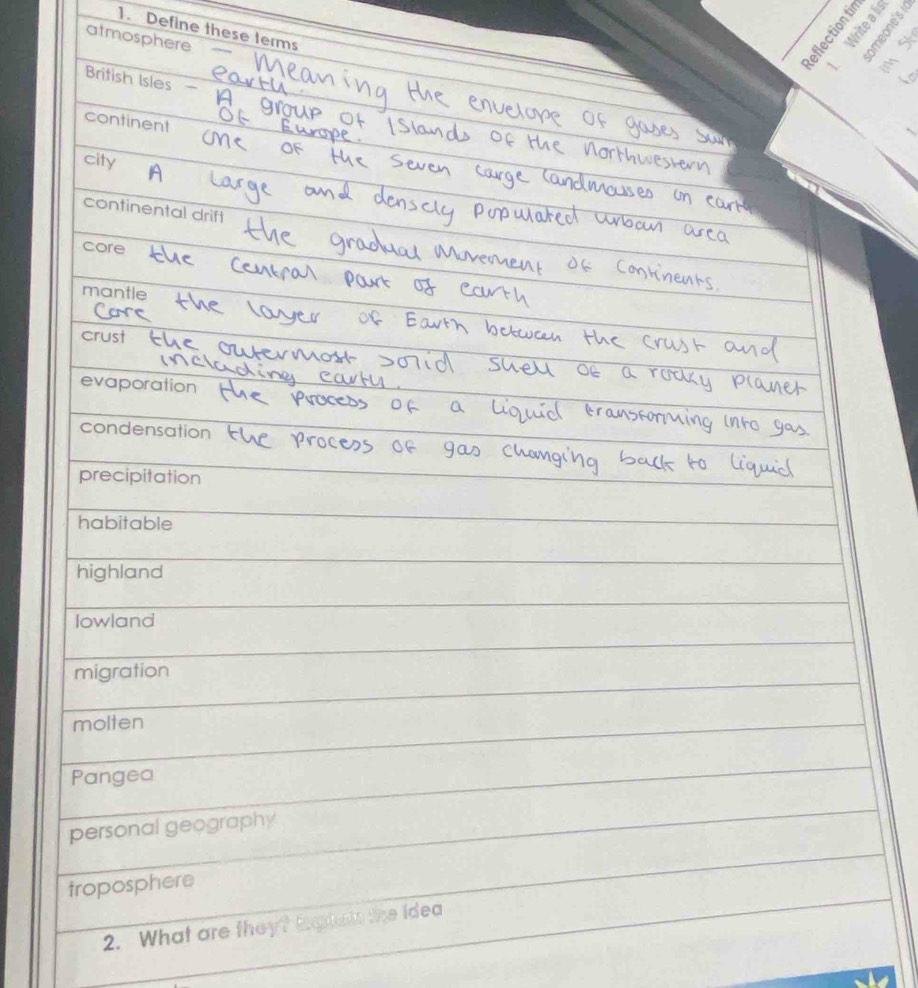 1. Define these terms
atmosphere - meaning the envelope of gases
earth.
British Isles - A group of Islands of the northwestern
of Europe.
continent one of the seven large landmasses on earth
city A large and densely populated urban area
continental drift the gradual movement of continents.
core the central part of earth
mantle the layer of Earth between the crust and
core
crust the outermost solid shell of a rocky planet
including earth.
evaporation the process of a liquid transforming into gas
condensation the process of gas changing back to liquid
precipitation
habitable
highland
lowland
migration
molten
Pangea
personal geography
troposphere
2. What are they? idea
Reflection
1. Write a list
someone's